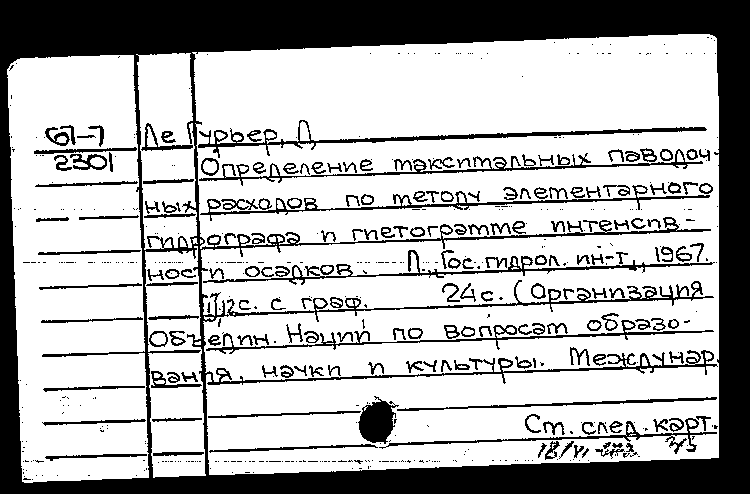 67-7 Ле Гурьер, Д.
2301 Определение максимальных паводоч-
ных расходов по методу элементарного
гидрографа и гиетограмме интенсив-
ности осадков. Л., Гос. гидрол. ин-т, 1967.
II, 12 с. с граф. 24 с. (Организация
Объедин. Наций по вопросам образо-
вания, науки и культуры. Междунар.
См. след. карт.
18/VI